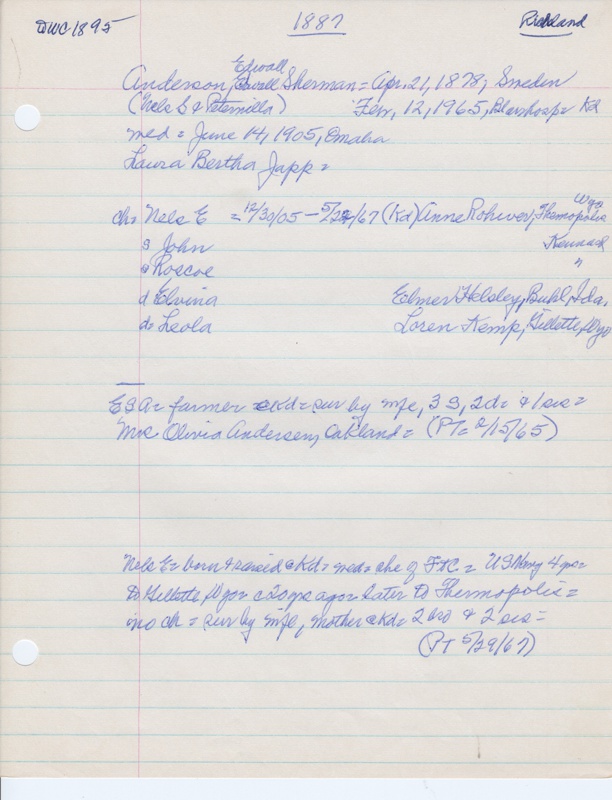 DWC 1895 1887 Richland
Edwall
Anderson, Sherman = Apr. 21, 1878, Sweden
(Nels S & Peternilla) Feb, 12, 1965, Blair hosp = Kd
med = June 14, 1905, Omaha
Laura Bertha Japp =
Wyo
ch = Nels E = 12/30/05 - 5/22/67 (Kd) Anne Rohwer, Thermopolis
s John Kennard
s Roscoe "
d Elvina Elmer Helsley, Buhl, Ida.
d = Leola Loren Kemp, Gillette, Wyo
ESA = farmer @ Kd = sur by wife, 3 S, 2 d = & 1 sis =
Mrs Olivia Andersen, Oakland = (PT = 2/15/65)
Nels E = born & raised @ Kd = med = che of FTC = US Navy 4 yrs =
to Gillette, Wyo = c 20 yrs ago = later to Thermopolis =
no ch = sur by wife, mother @ Kd = 2 bro & 2 sis =
(PT 5/29/67)